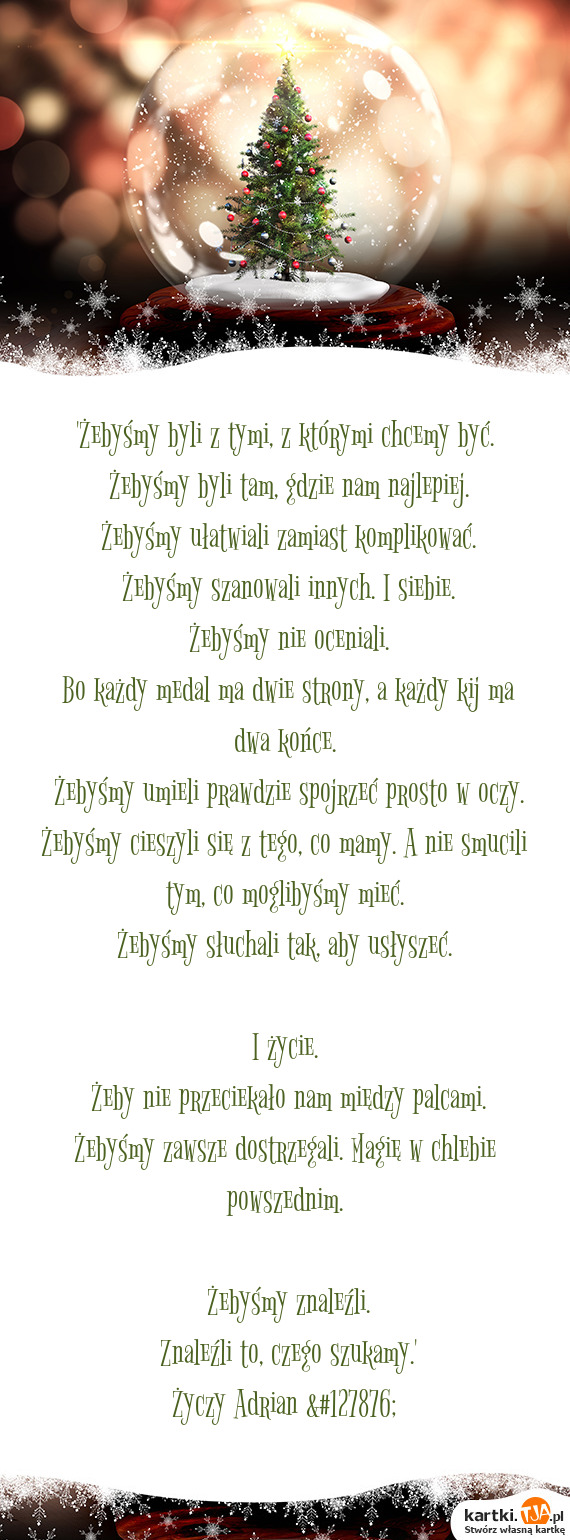 'Żebyśmy byli z tymi, z którymi chcemy być.
Żebyśmy byli tam, gdzie nam najlepiej.
Żebyśmy ułatwiali zamiast komplikować.
Żebyśmy szanowali innych. I siebie.
Żebyśmy nie oceniali.
Bo każdy medal ma dwie strony, a każdy kij ma
dwa końce.
Żebyśmy umieli prawdzie spojrzeć prosto w oczy.
Żebyśmy cieszyli się z tego, co mamy. A nie smucili
tym, co moglibyśmy mieć.
Żebyśmy słuchali tak, aby usłyszeć.
I życie.
Żeby nie przeciekało nam między palcami.
Żebyśmy zawsze dostrzegali. Magię w chlebie
powszednim.
Żebyśmy znaleźli.
Znaleźli to, czego szukamy.'
Życzy Adrian &#127876;
kartki.TJA.pl
Stwórz własną kartkę